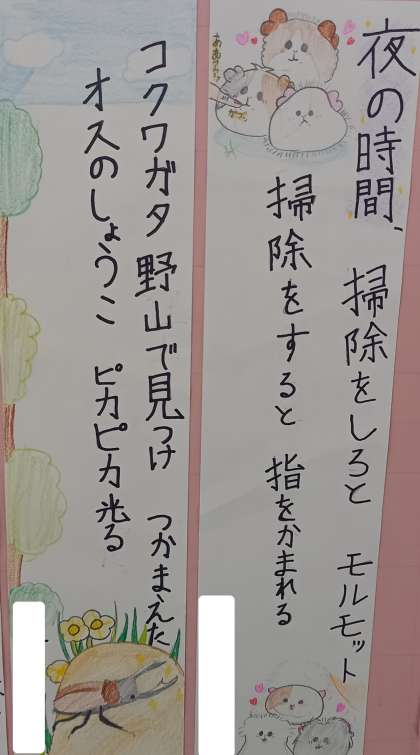 夜の時間、掃除をしろと モルモット
掃除をすると 指をかまれる
コクワガタ 野山で見つけ つかまえた
オスのしょうこ ピカピカ光る